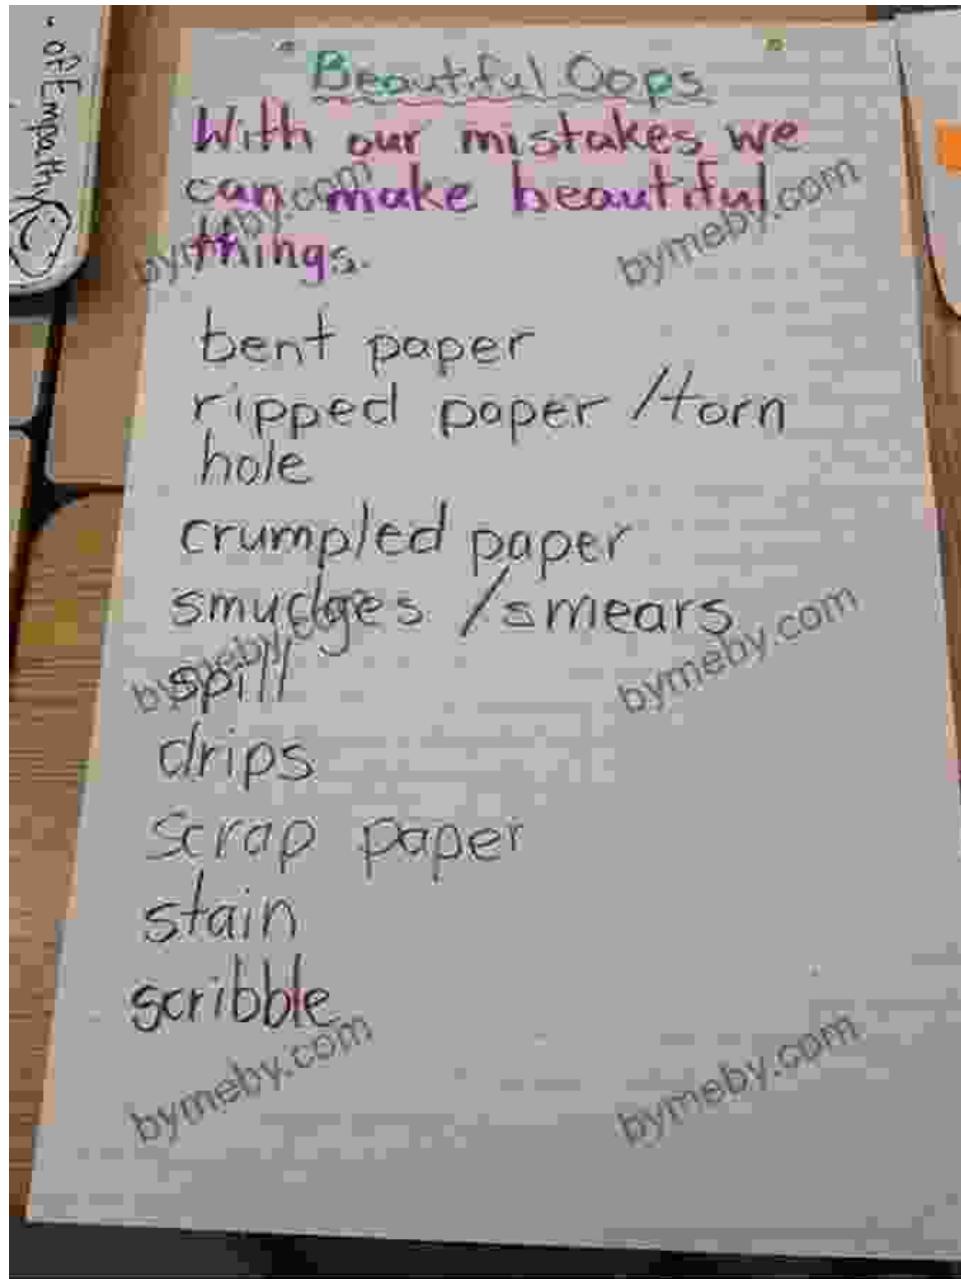 • of Empathy
Beautiful Oops
With our mistakes we
can make beautiful
things.
bent paper
ripped paper / torn
hole
crumpled paper
smudges / smears
spill
drips
scrap paper
stain
scribble
bymeby.com
bymeby.com
bymeby.com
bymeby.com
bymeby.com
bymeby.com